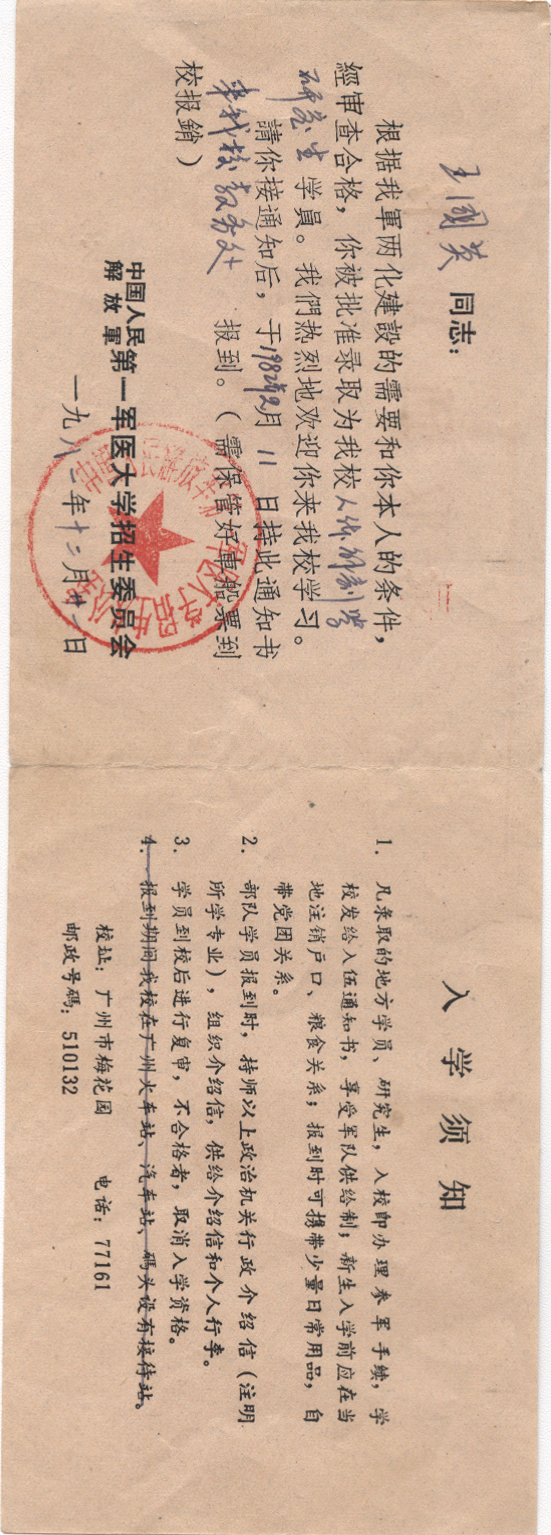 王國英 同志：
根据我軍两化建設的需要和你本人的条件，
經审查合格，你被批准录取为我校人体解剖学
研究生学員。我們热烈地欢迎你来我校学习。
請你接通知后，于1982年2月11日持此通知书
来我校教务处 报到。（需保管好車船票到
校报銷）
中国人民解放軍第一军医大学招生委员会
一九八二年十二月廿一日
入学须知
1．凡录取的地方学员、研究生，入校即办理参军手续，学
校发给入伍通知书，享受军队供给制；新生入学前应在当
地注销户口、粮食关系；报到时可携带少量日常用品，自
带党团关系。
2．部队学员报到时，持师以上政治机关行政介绍信（注明
所学专业），组织介绍信，供给介绍信和个人行李。
3．学员到校后进行复审，不合格者，取消入学资格。
4．报到期间我校在广州火车站、汽车站、码头设有接待站。
校址：广州市梅花园 电话：77161
邮政号码：510132